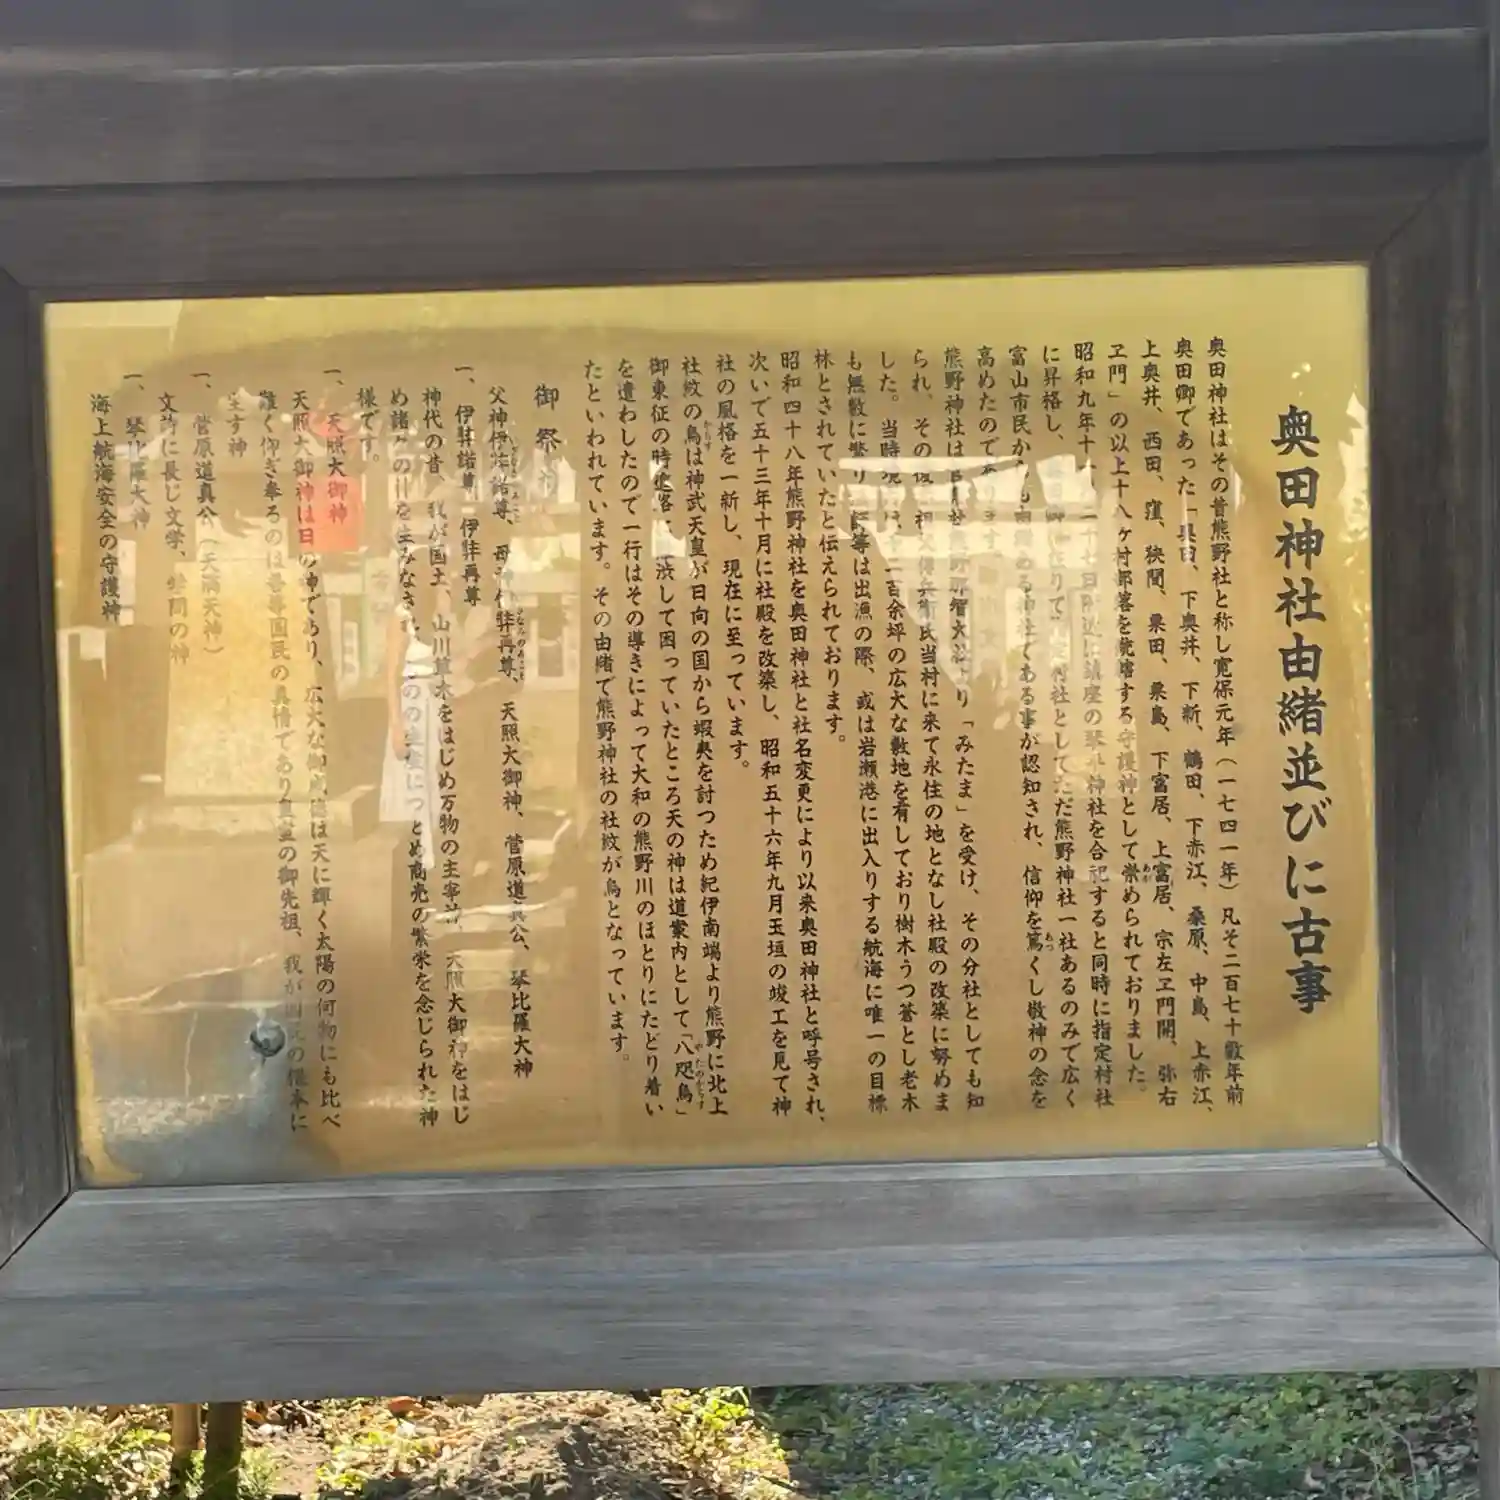 奥田神社由緒並びに古事
奥田神社はその昔熊野社と称し寛保元年(一七四一年)凡そ二百七十数年前
奥田郷であった「奥田、下奥井、下新、鶴田、下赤江、桑原、中島、上赤江、
上奥井、西田、窪、狭間、粟田、粟島、下富居、上富居、宗左ヱ門開、弥右
ヱ門」の以上十八ヶ村部落を統轄する守護神として崇められておりました。
昭和九年十 二十七日附近に鎮座の琴平神社を合祀すると同時に指定村社
に昇格し、 指定村社としてただ熊野神社一社あるのみで広く
富山市民からも由緒ある神社である事が認知され、信仰を篤くし敬神の念を
高めたのであります。
熊野神社は 熊野那智大社より「みたま」を受け、その分社としても知
られ、その後 氏当村に来て永住の地となし社殿の改築に努めま
した。当時境内は 百余坪の広大な敷地を有しており樹木うつ蒼とし老木
も無数に繁り 等は出漁の際、或は岩瀬港に出入りする航海に唯一の目標
林とされていたと伝えられております。
昭和四十八年熊野神社を奥田神社と社名変更により以来奥田神社と呼号され、
次いで五十三年十月に社殿を改築し、昭和五十六年九月玉垣の竣工を見て神
社の風格を一新し、現在に至っています。
社紋の烏は神武天皇が日向の国から蝦夷を討つため紀伊南端より熊野に北上
御東征の時進路に難渋して困っていたところ天の神は道案内として「八咫烏」
を遣わしたので一行はその導きによって大和の熊野川のほとりにたどり着い
たといわれています。その由緒で熊野神社の社紋が烏となっています。
御祭神
父神伊弉諾尊、母神伊弉再尊、天照大御神、菅原道真公、琴比羅大神
一、伊弉諾尊 伊弉再尊
神代の昔、我が国土、山川草木をはじめ万物の主宰神、天照大御神をはじ
め諸々の神を生みなされ、ものの生産につとめ商売の繁栄を念じられた神
様です。
一、天照大御神
天照大御神は日の神であり、広大な御威徳は天に輝く太陽の何物にも比べ
難く仰ぎ奉るのは吾等国民の真情であり皇室の御先祖、我が国民の根本に
座す神
一、菅原道真公(天満天神)
文詩に長じ文学、学問の神
一、琴比羅大神
海上航海安全の守護神